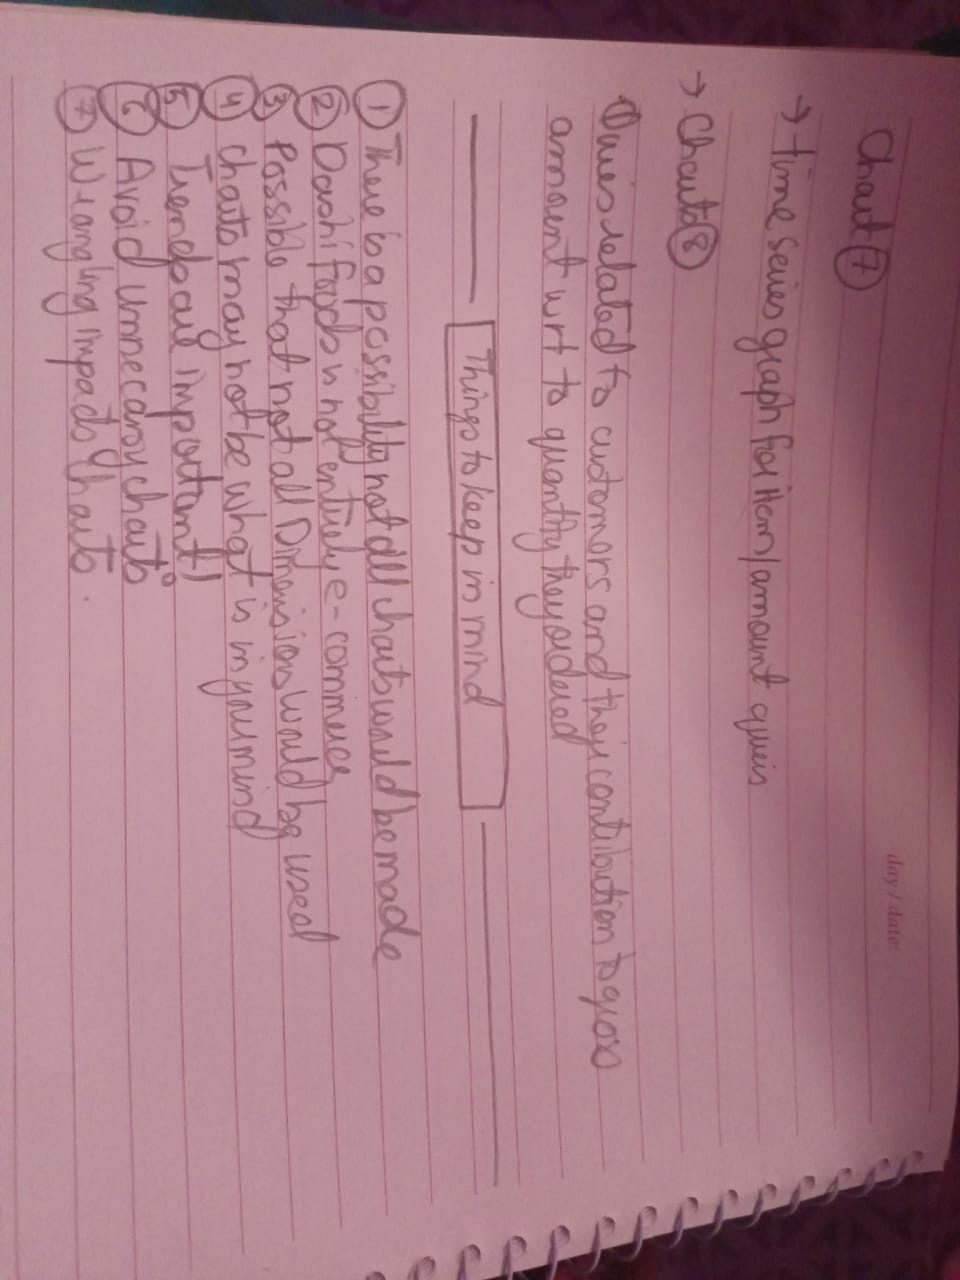 day / date:
Chart ⑦
→ time series graph for item/amount queris
→ Charts ⑧
Queris related to customers and their contribution to gross
amoent wrt to quantity they ordered
Things to keep in mind
① There is a possibility not all charts would be made
② Dashi foods is not entirely e-commerce
③ Possible that not all Dimensions would be used
④ Charts may not be what is in your mind
⑤ Trends are important!
⑥ Avoid Unnecarsy charts
⑦ Wrangling impacts charts.